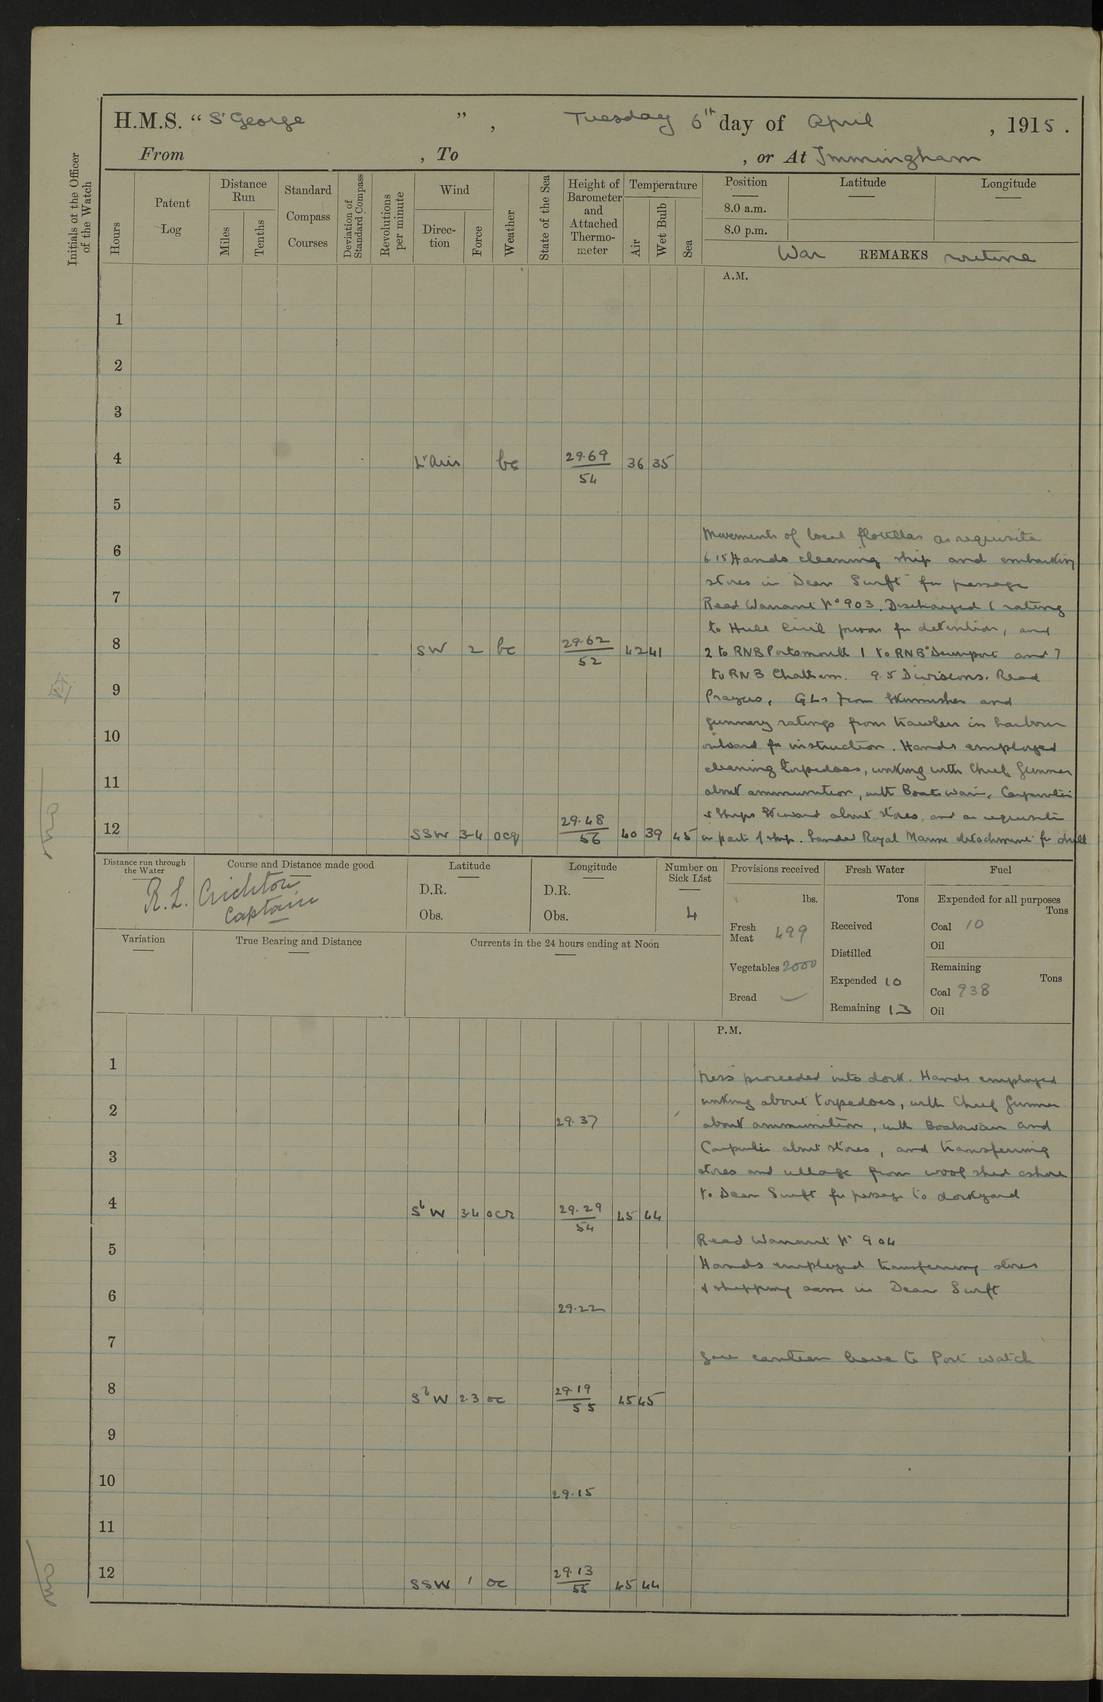 H.M.S. "St George", Tuesday 6th day of April, 1915.
From , To , or At Immingham
Initials of the Officer of the Watch
Hours
Patent Log
Distance Run
Miles
Tenths
Standard Compass Courses
Deviation of Standard Compass
Revolutions per minute
Wind
Direction
Force
Weather
State of the Sea
Height of Barometer and Attached Thermometer
Temperature
Air
Wet Bulb
Sea
Position Latitude Longitude
8.0 a.m.
8.0 p.m.
War REMARKS routine
A.M.
1
2
3
4 Lt Airs bc 29.69/54 36 35
5
Movements of local flotillas as requisite
6
6 15 Hands cleaning ship and embarking
stores in Dean Swift for passage
7
Read Warrant No 903. Discharged 6 rating
to Hull Civil prison for detention, and
8 SW 2 bc 29.62/52 42 41
2 to RNB Portsmouth 1 to RNB Devonport and 7
to RNB Chatham. 9.5 Divisions. Read
9
Prayers, GLs from Skirmisher and
gunnery ratings from trawlers in harbour
10
onboard for instruction. Hands employed
cleaning torpedoes, working with Chief Gunner
11
about ammunition, with Boatswain, Carpenter
& Ships Steward about stores, and as requisite
12 SSW 3-4 ocq 29.48/56 40 39 45
in part of ship. Landed Royal Marine detachment for drill
Distance run through the Water
Course and Distance made good
Latitude
D.R.
Obs.
Longitude
D.R.
Obs.
Number on Sick List
4
R.L. Crichton
Captain
Provisions received
lbs.
Fresh Meat 499
Vegetables 2000
Bread —
Fresh Water
Tons
Received
Distilled
Expended 10
Remaining 13
Fuel
Expended for all purposes
Tons
Coal 10
Oil
Remaining
Tons
Coal 938
Oil
Variation
True Bearing and Distance
Currents in the 24 hours ending at Noon
P.M.
1
proceeded into dock. Hands employed
working about torpedoes, with Chief Gunner
2 29.37
about ammunition, with Boatswain and
3
Carpenter about stores, and transferring
stores and ullage from wool shed ashore
4 SbW 3-4 ocr 29.29/54 45 44
to Dean Swift for passage to dockyard
5
Read Warrant No 904
Hands employed transferring stores
6 29.22
& shipping same in Dean Swift
7
Gave canteen leave to Port watch
8 SbW 2.3 oc 29.19/55 45 45
9
10 29.15
11
12 SSW 1 oc 29.13/55 45 44